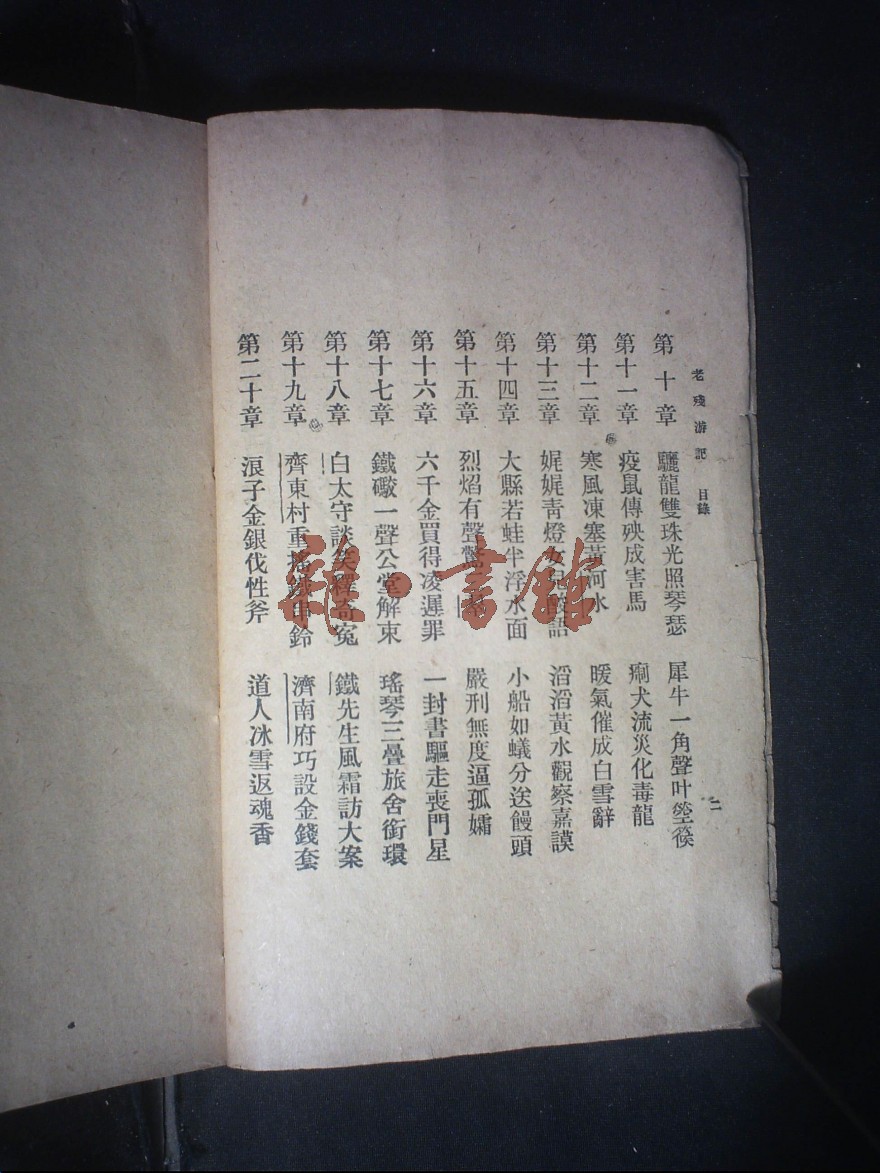 老殘游記 目錄 二
第十章 驪龍雙珠光照琴瑟 犀牛一角聲叶箜篌
第十一章 疫鼠傳殃成害馬 瘈犬流災化毒龍
第十二章 寒風凍塞黃河水 暖氣催成白雪辭
第十三章 娓娓青燈女兒酸語 滔滔黃水觀察嘉謨
第十四章 大縣若蛙半浮水面 小船如蟻分送饅頭
第十五章 烈焰有聲驚 嚴刑無度逼孤孀
第十六章 六千金買得凌遲罪 一封書驅走喪門星
第十七章 鐵礮一聲公堂解束 瑤琴三疊旅舍銜環
第十八章 白太守談笑釋奇冤 鐵先生風霜訪大案
第十九章 齊東村重搖鐵串鈴 濟南府巧設金錢套
第二十章 浪子金銀伐性斧 道人冰雪返魂香
雜·書館